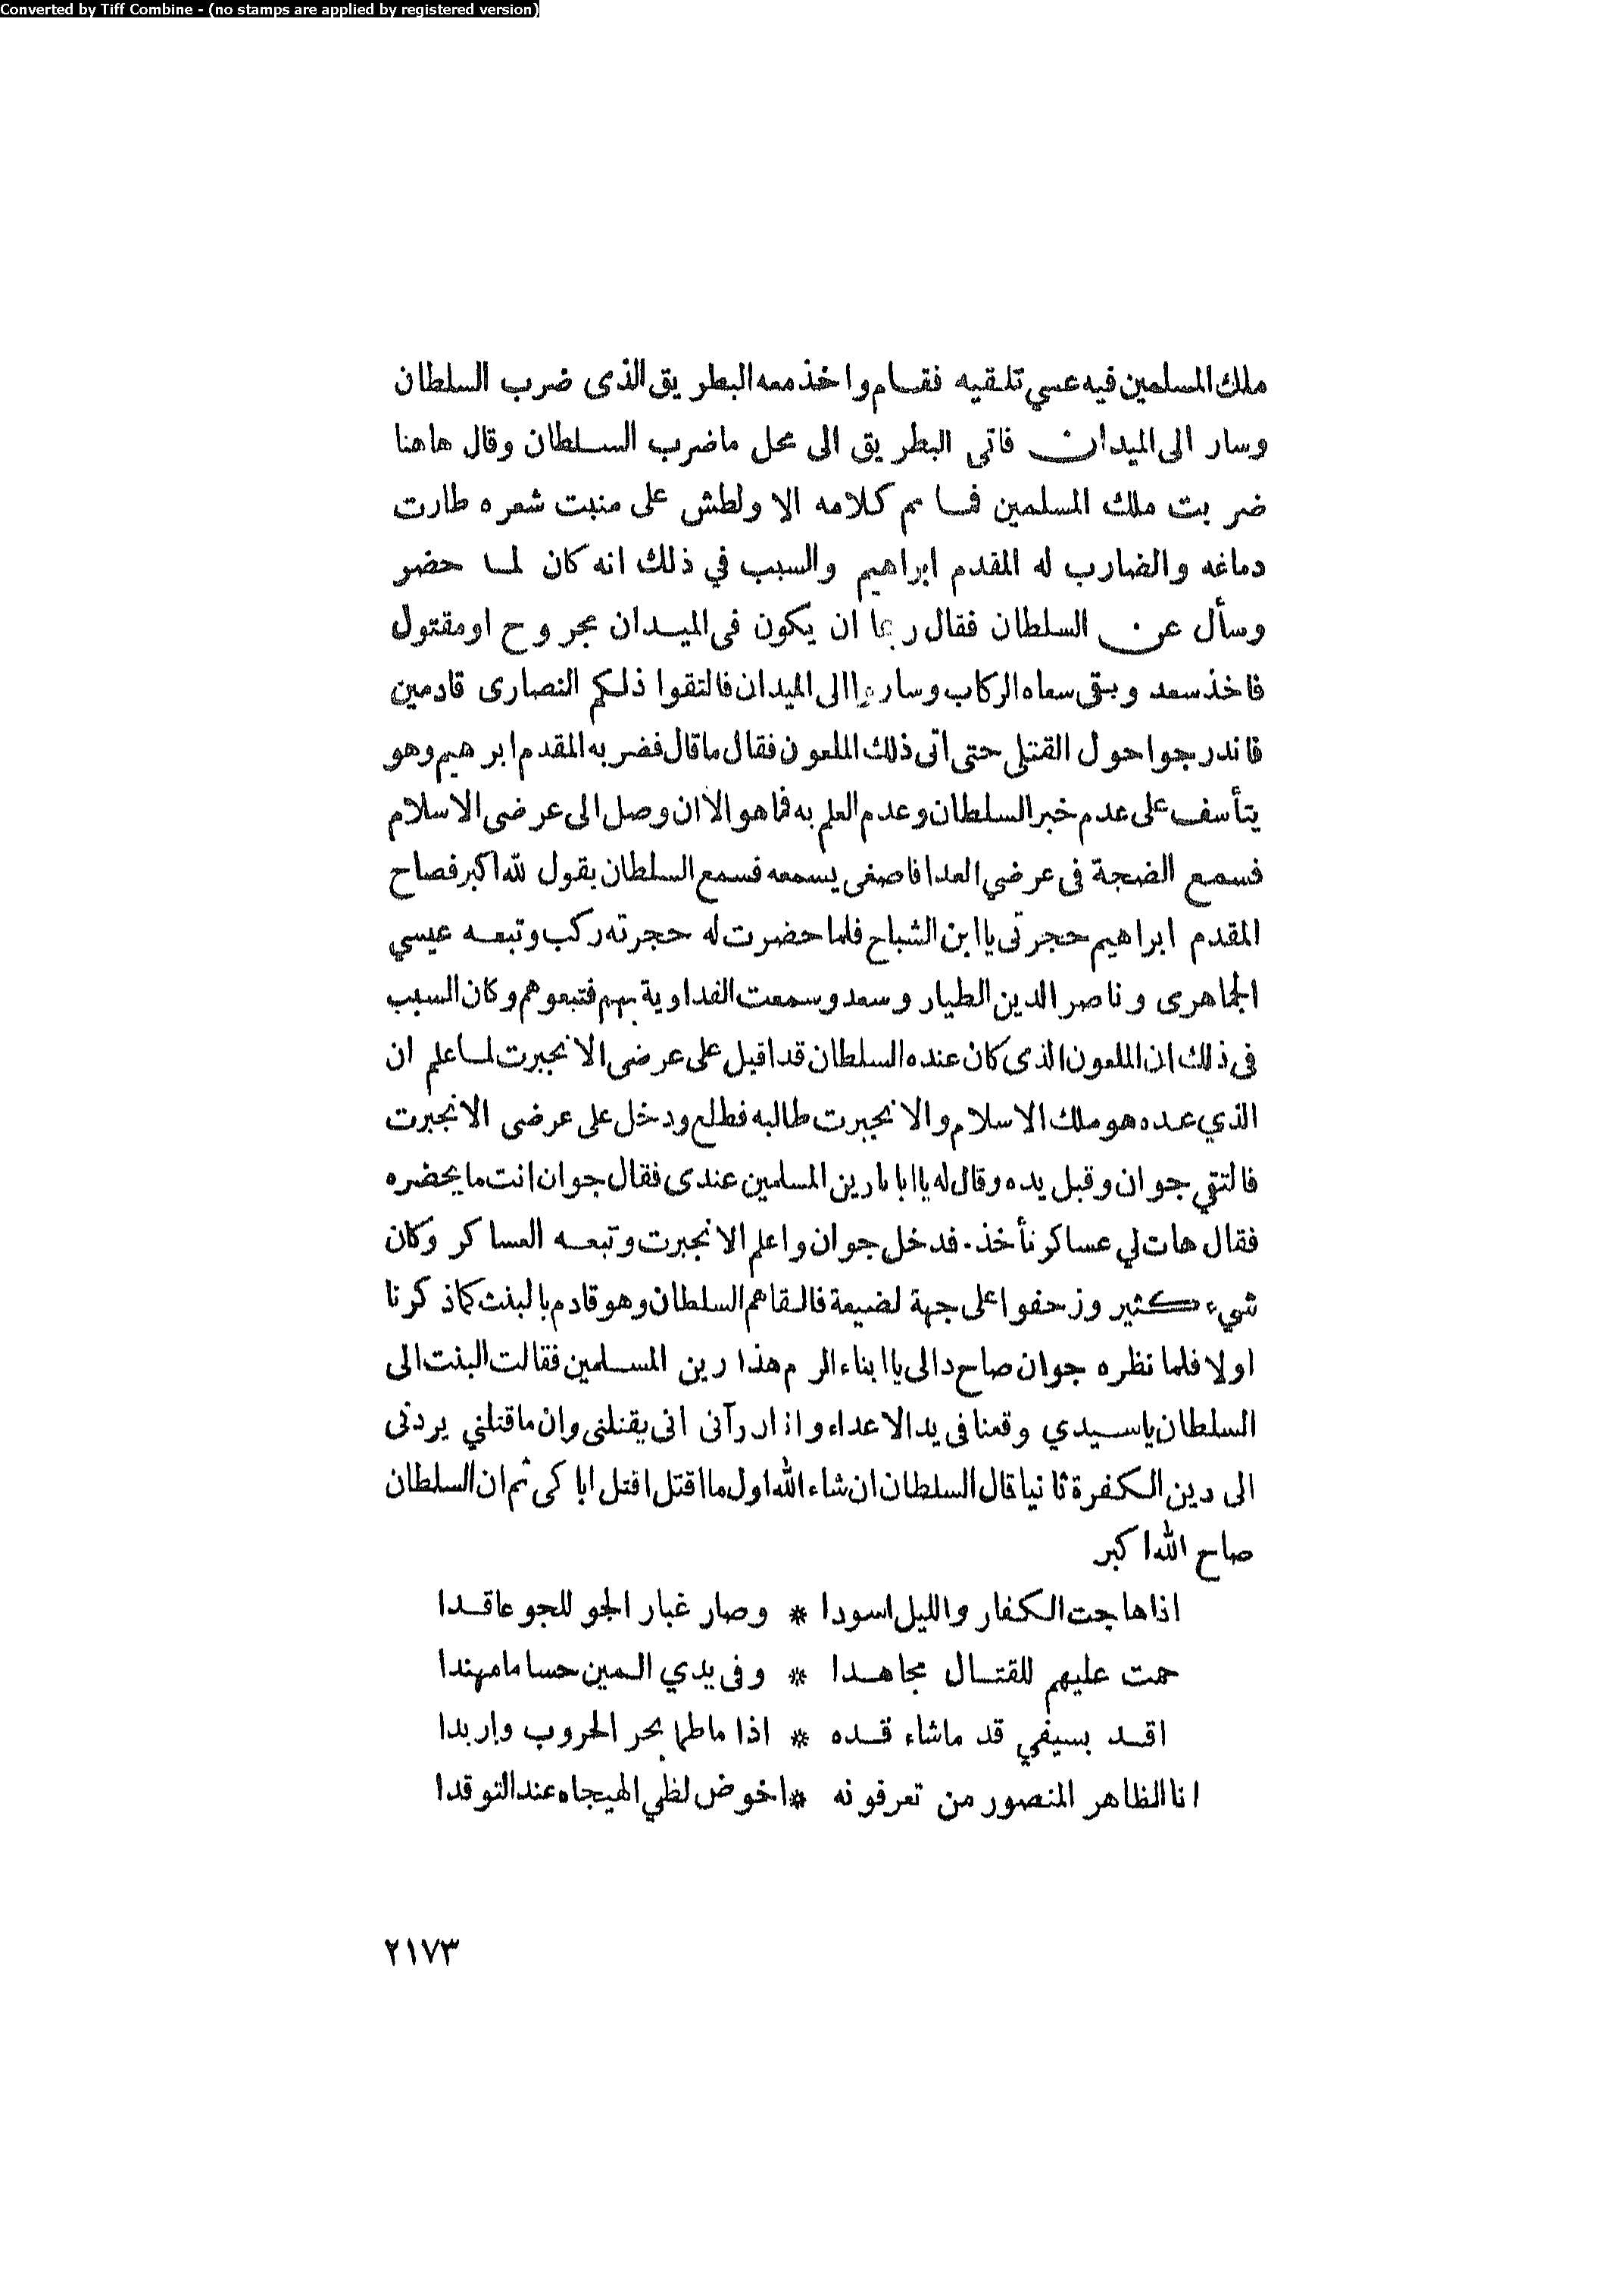 Converted by Tiff Combine - (no stamps are applied by registered version)
ملك المسلمين فيه عسي تلقيه فقام واخذ معه البطريق الذى ضرب السلطان
وسار الى الميدان فاتى البطريق الى محل ماضرب السلطان وقال هاهنا
ضربت ملك المسلمين فما تم كلامه الا ولطش على منبت شعره طارت
دماغه والضارب له المقدم ابراهيم والسبب في ذلك انه كان لما حضر
وسأل عن السلطان فقال ربما ان يكون فى الميدان مجروح او مقتول
فاخذ سعد وبقى سعاه الركاب وساروا الى الميدان فالتقوا ذلكم النصارى قادمين
فاندرجوا حول القتلى حتى اتى ذلك الملعون فقال ماقال فضربه المقدم ابرهيم وهو
يتأسف على عدم خبر السلطان وعدم العلم به فما هو الا ان وصل الى عرضى الاسلام
فسمع الضجة فى عرضي العدا فاصغى يسمعه فسمع السلطان يقول لله اكبر فصاح
المقدم ابراهيم حجرتى يا ابن الشباح فلما حضرت له حجرته ركب وتبعه عيسي
الجماهرى وناصر الدين الطيار وسعد وسمعت الفداوية بهم فتبعوهم وكان السبب
فى ذلك ان الملعون الذى كان عنده السلطان قد اقبل على عرضى الانجبرت لما علم ان
الذي عده هو ملك الاسلام والانجبرت طالبه فطلع ودخل على عرضى الانجبرت
فالتقي جوان وقبل يده وقال له يا ابابا رين المسلمين عندى فقال جوان انت ما يحضره
فقال هات لي عساكر نأخذ. فدخل جوان واعلم الانجبرت وتبعه العساكر وكان
شيء كثير وزحفوا على جهة لضيعة فالقاهم السلطان وهو قادم بالبنت كماذكرنا
اولا فلما نظره جوان صاح دالى يا ابناء الرم هذا رين المسلمين فقالت البنت الى
السلطان ياسيدي وقعنا فى يد الاعداء واذا رآنى انى يقتلنى وان ماقتلني يردنى
الى دين الكفرة ثانيا قال السلطان ان شاء الله اول ما اقتل اقتل اباكى ثم ان السلطان
صاح الله اكبر
اذا هاجت الكفار والليل اسودا * وصار غبار الجو للجو عاقدا
حمت عليهم للقتال مجاهدا * وفى يدي المين حساما مهندا
اقد بسيفي قد ماشاء قده * اذا ماطما بحر الحروب واربدا
انا الظاهر المنصور من تعرفونه * اخوض لظي الهيجاه عند التوقدا
٢١٧٣